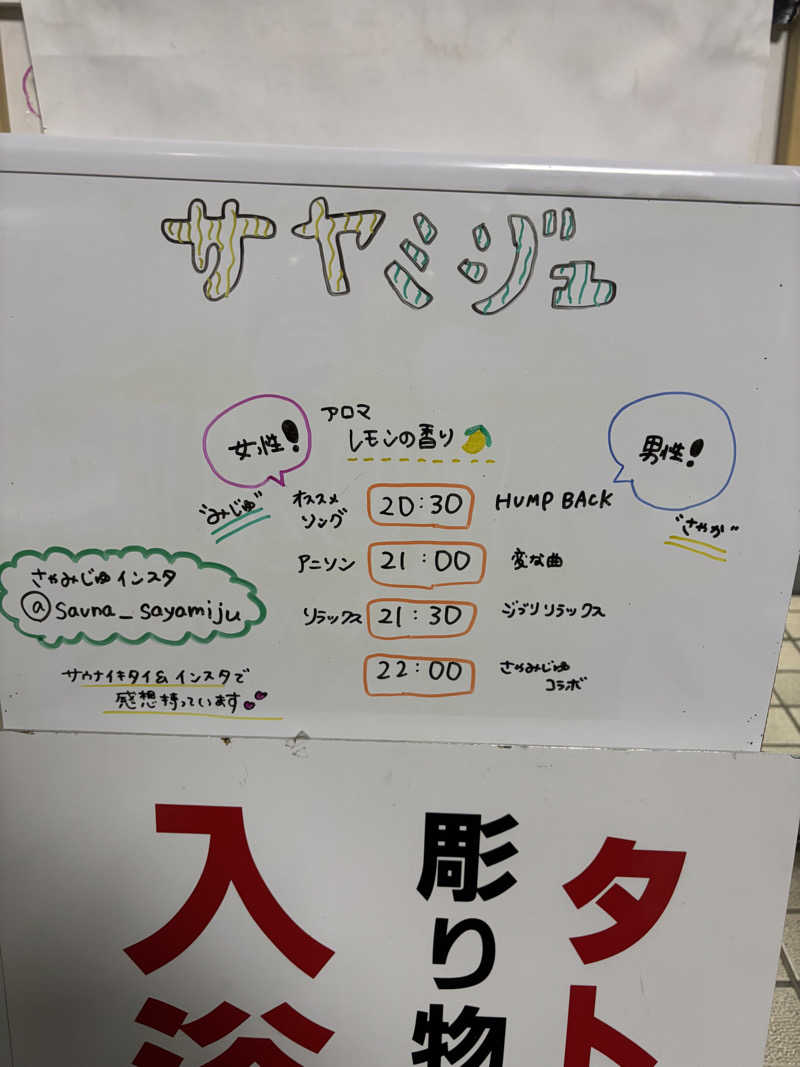 サヤミジュ
女性!
アロマ
レモンの香り
男性!
"みじゅ"
オススメ
ソング
20:30
HUMP BACK
"さやか"
アニソン
21:00
変な曲
リラックス
21:30
ジブリリラックス
22:00
さやみじゅ
コラボ
さやみじゅインスタ
@sauna_sayamiju
サウナイキタイ&インスタで
感想待っています
タト
彫り物
入浴